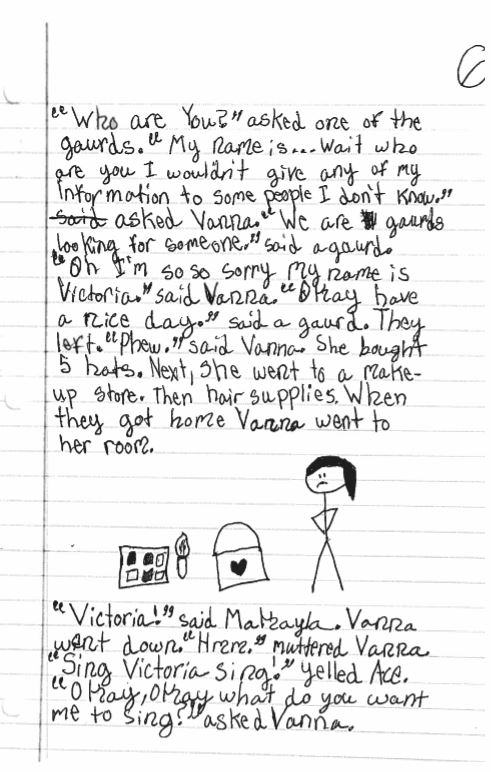 6
"Who are You?" asked one of the
gaurds." My name is... Wait who
are you I wouldn't give any of my
Information to some people I don't know."
said asked Vanna." We are gaurds
looking for someone." said a gaurd.
"Oh I'm so so sorry My name is
Victoria." said Vanna. "Okay have
a nice day." said a gaurd. They
left. "Phew." said Vanna. She bought
5 hats. Next, she went to a make-
up store. Then hair supplies. When
they got home Vanna went to
her room.
"Victoria!" said Makayla. Vanna
went down. "Hmm." muttered Vanna
"Sing Victoria sing!" yelled Ace.
"Okay, okay what do you want
me to sing?" asked Vanna.